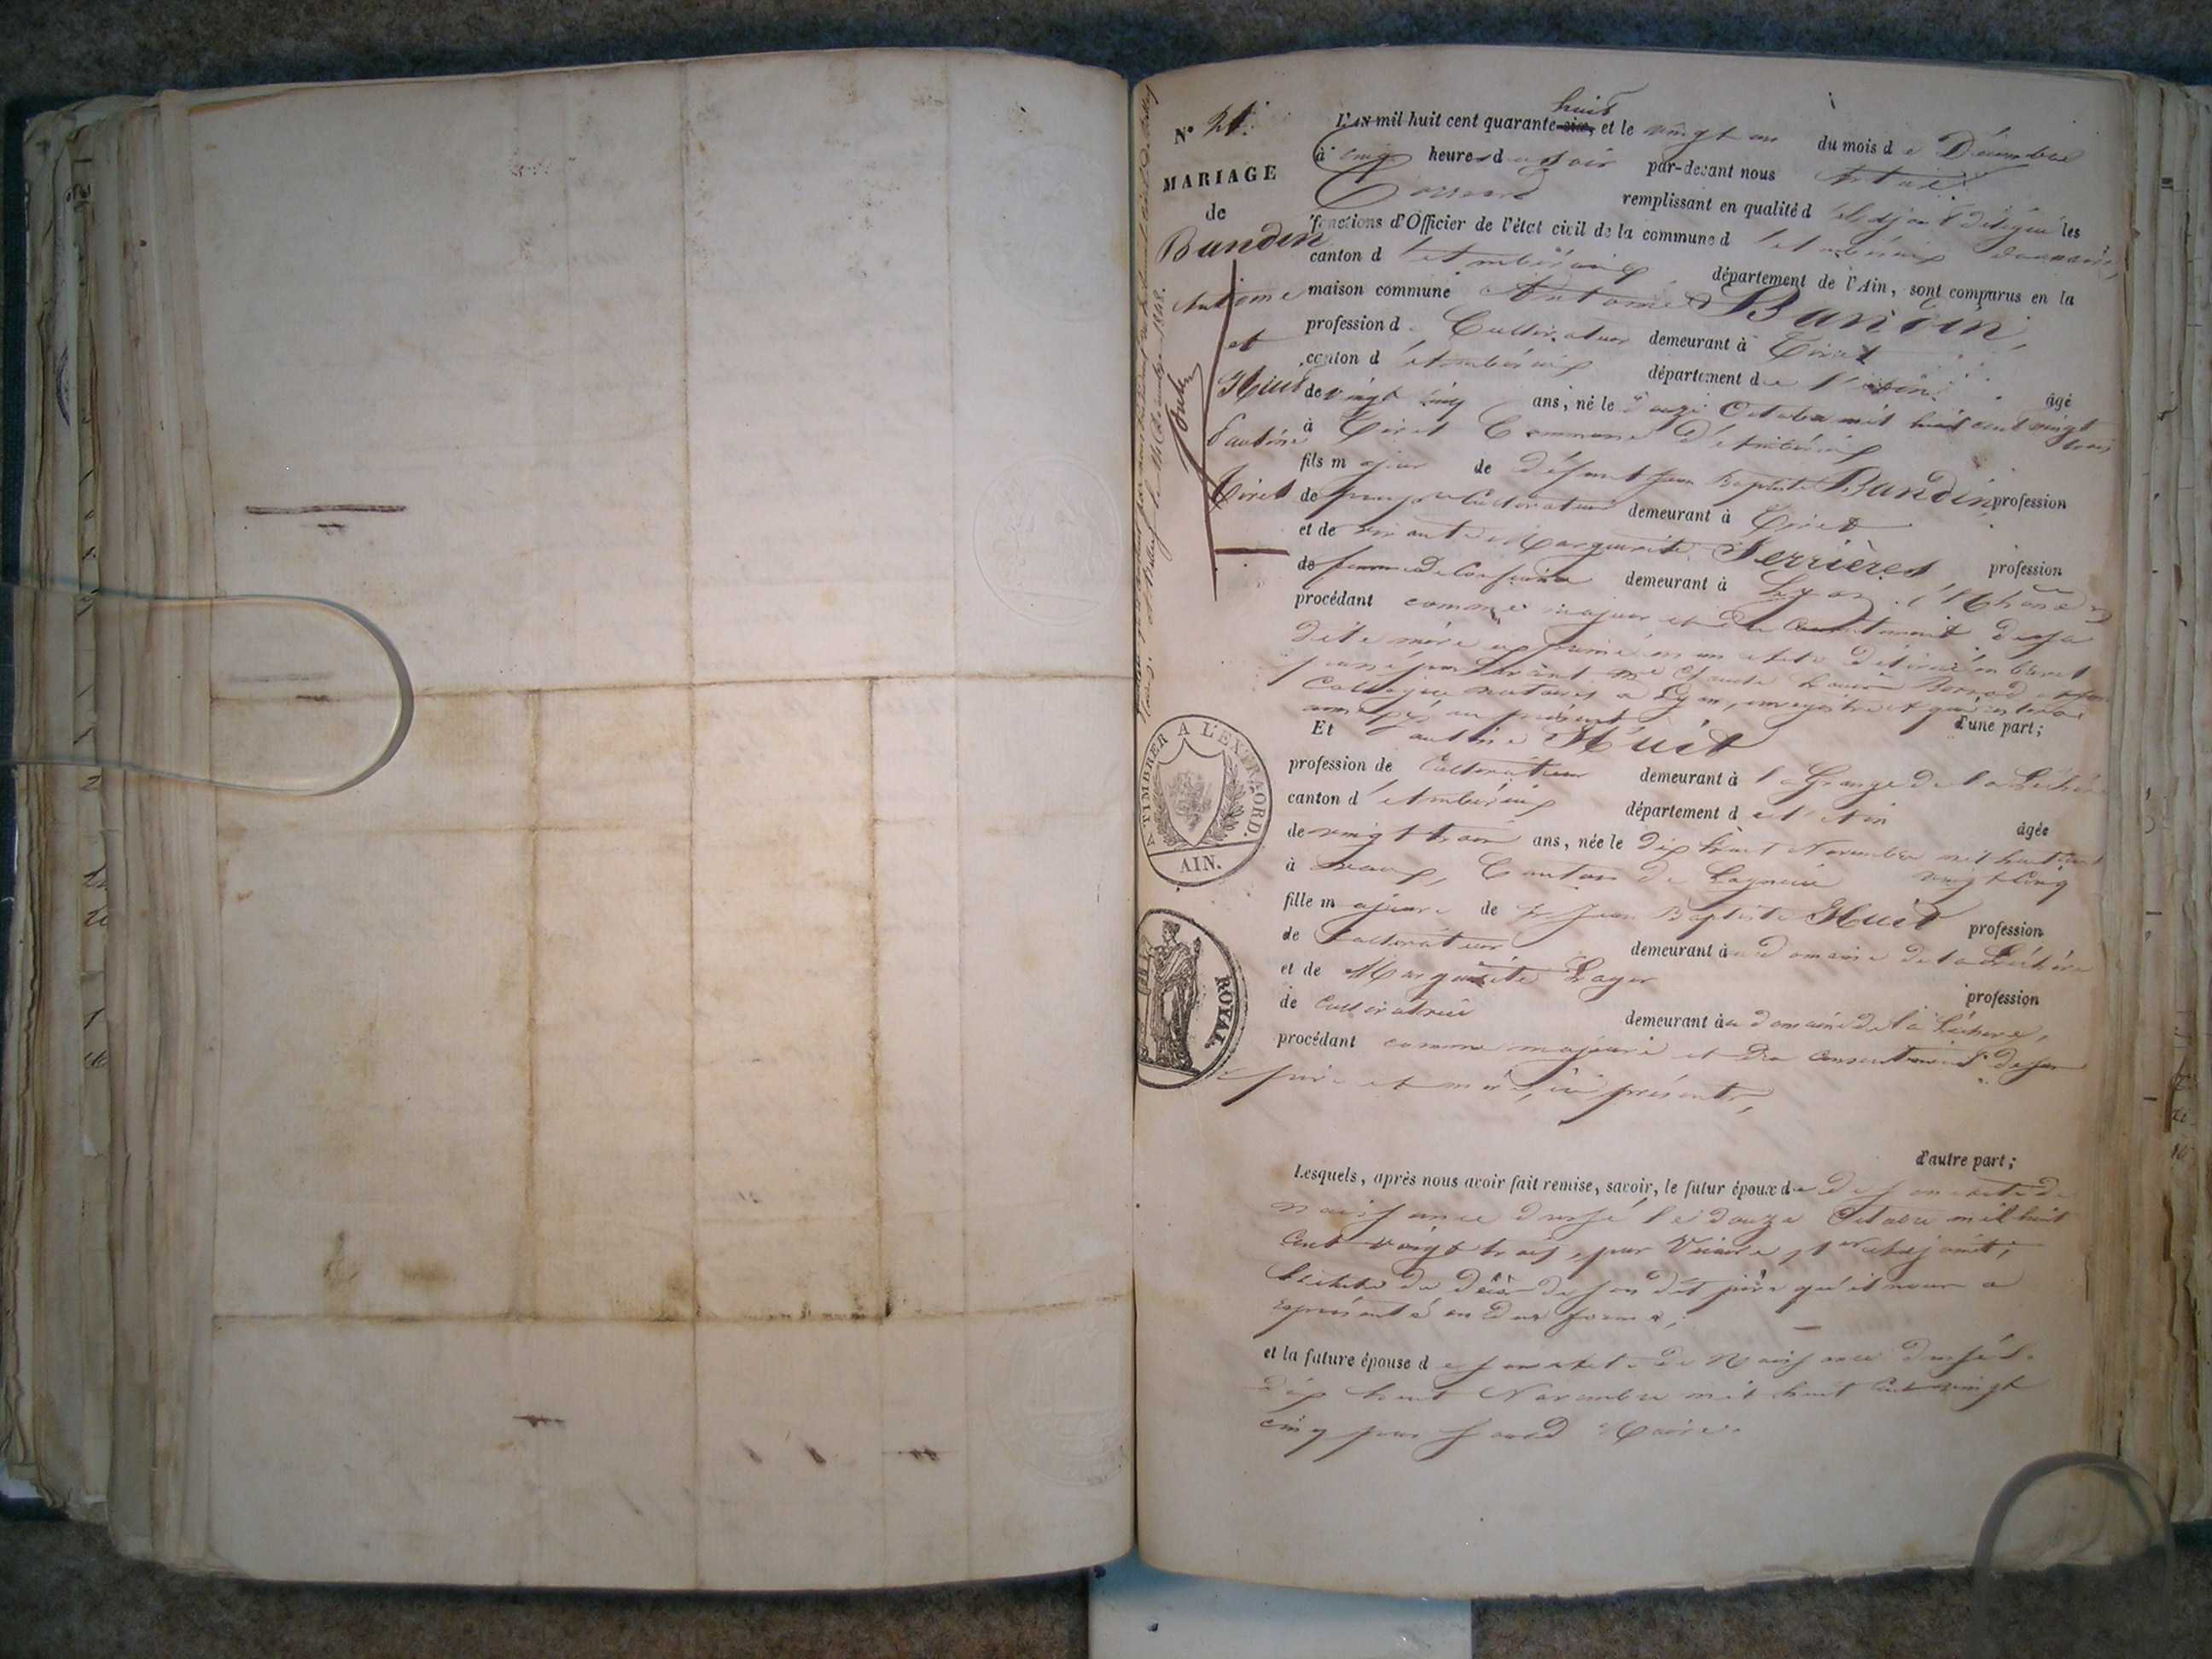 N° 21.
MARIAGE
de
Bandin
Antoine
et
Huit
Fautine
Tiret
1848.
A TIMBRER A L'EXTRAORD.
AIN.
ROYAL.
huit
L'AN mil huit cent quarante-six, et le vingt un du mois de Décembre
à cinq heures du soir par-devant nous
remplissant en qualité d'adjoint délégué les
fonctions d'Officier de l'état civil de la commune d'Ambérieux
canton d'Ambérieux département de l'Ain, sont comparus en la
maison commune Antoine Bandin,
profession de Cultivateur demeurant à Tiret
canton d'Ambérieux département de l'Ain. âgé
de vingt cinq ans, né le douze Octobre mil huit cent vingt
trois
à Tiret Commune d'Ambérieux
fils majeur de défunt Jean Baptiste Bandin profession
de Cultivateur demeurant à Tiret
et de vivante Marguerite Serrières profession
de femme de Confiance demeurant à Lyon (Rhône)
procédant comme majeur et du Consentement de sa
dite mère exprimé en un acte délivré en brevet
par devant Me Claude
Collègue notaires à Lyon, enregistré et qui restera
annexé au présent d'une part;
Et Fautine Huit
profession de Cultivateur demeurant à la Grange de la Léchère
canton d'Ambérieux département de l'Ain âgée
de vingt trois ans, née le dix huit Novembre mil huit cent
vingt cinq
à Vaux, Canton de Lagnieu
fille majeure de Jean Baptiste Huit profession
de Cultivateur demeurant au domaine de la Léchère
et de Marguerite Layer profession
de Cultivatrice demeurant au domaine de la Léchère,
procédant comme majeure et du Consentement de ses
père et mère, ici présents,
d'autre part;
Lesquels, après nous avoir fait remise, savoir, le futur époux de de son acte de
naissance dressé le douze Octobre mil huit
Cent vingt trois, par adjoint;
l'acte de décès de son dit père qu'il nous a
représenté en due forme;
et la future épouse de son acte de Naissance dressé le
dix huit Novembre mil huit Cent vingt
cinq par Maire.